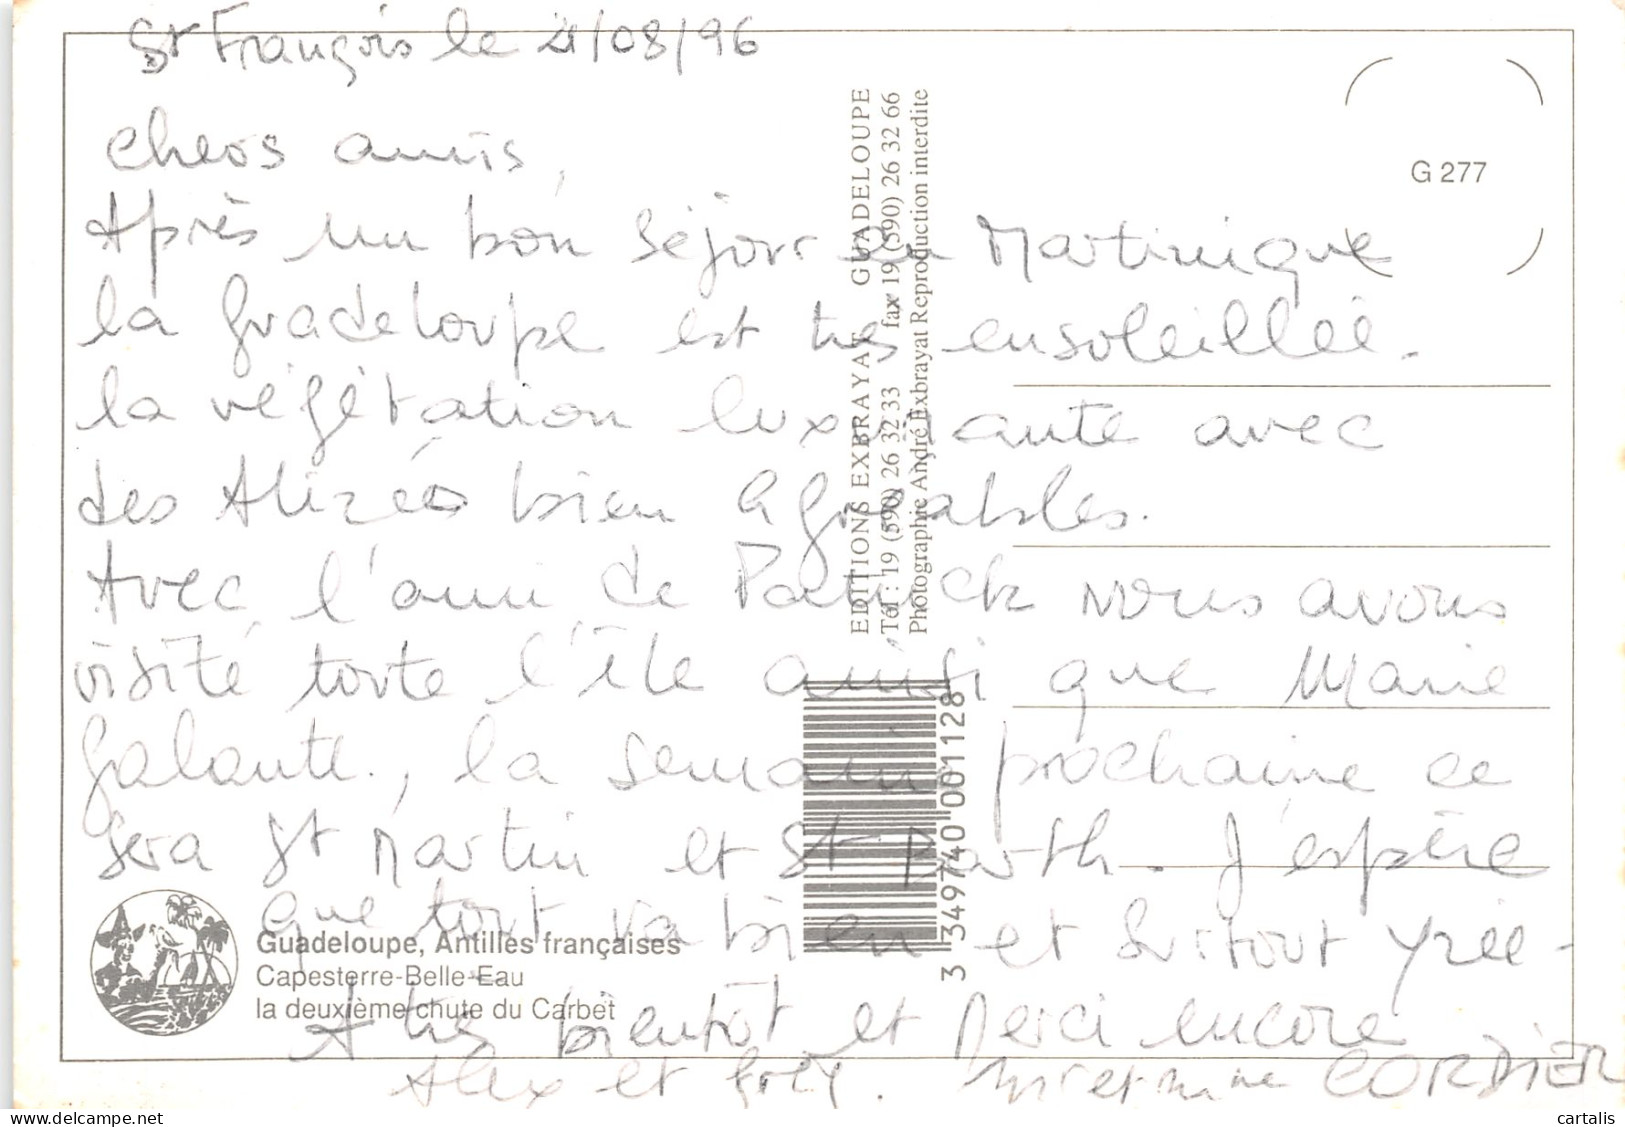 St François le 21/08/96
chers amis,
Après un bon séjour en Martinique
la guadeloupe est très ensoleillée.
la végétation luxuriante avec
des Alizés bien agréables.
Avec l'ami de Patrick nous avons
visité toute l'île ainsi que Marie
galante, la semaine prochaine ce
sera St Martin et St Barth. J'espère
que tout va bien et surtout
A très bientôt et Merci encore
Alex et Mr et Mme CORDIER
EDITIONS EXBRAYAT GUADELOUPE
Tél : 19 (590) 26 32 33 fax 19 (590) 26 32 66
Photographie André Exbrayat Reproduction interdite
G 277
3 349740 001128
Guadeloupe, Antilles françaises
Capesterre-Belle-Eau
la deuxième chute du Carbet
cartalis.com